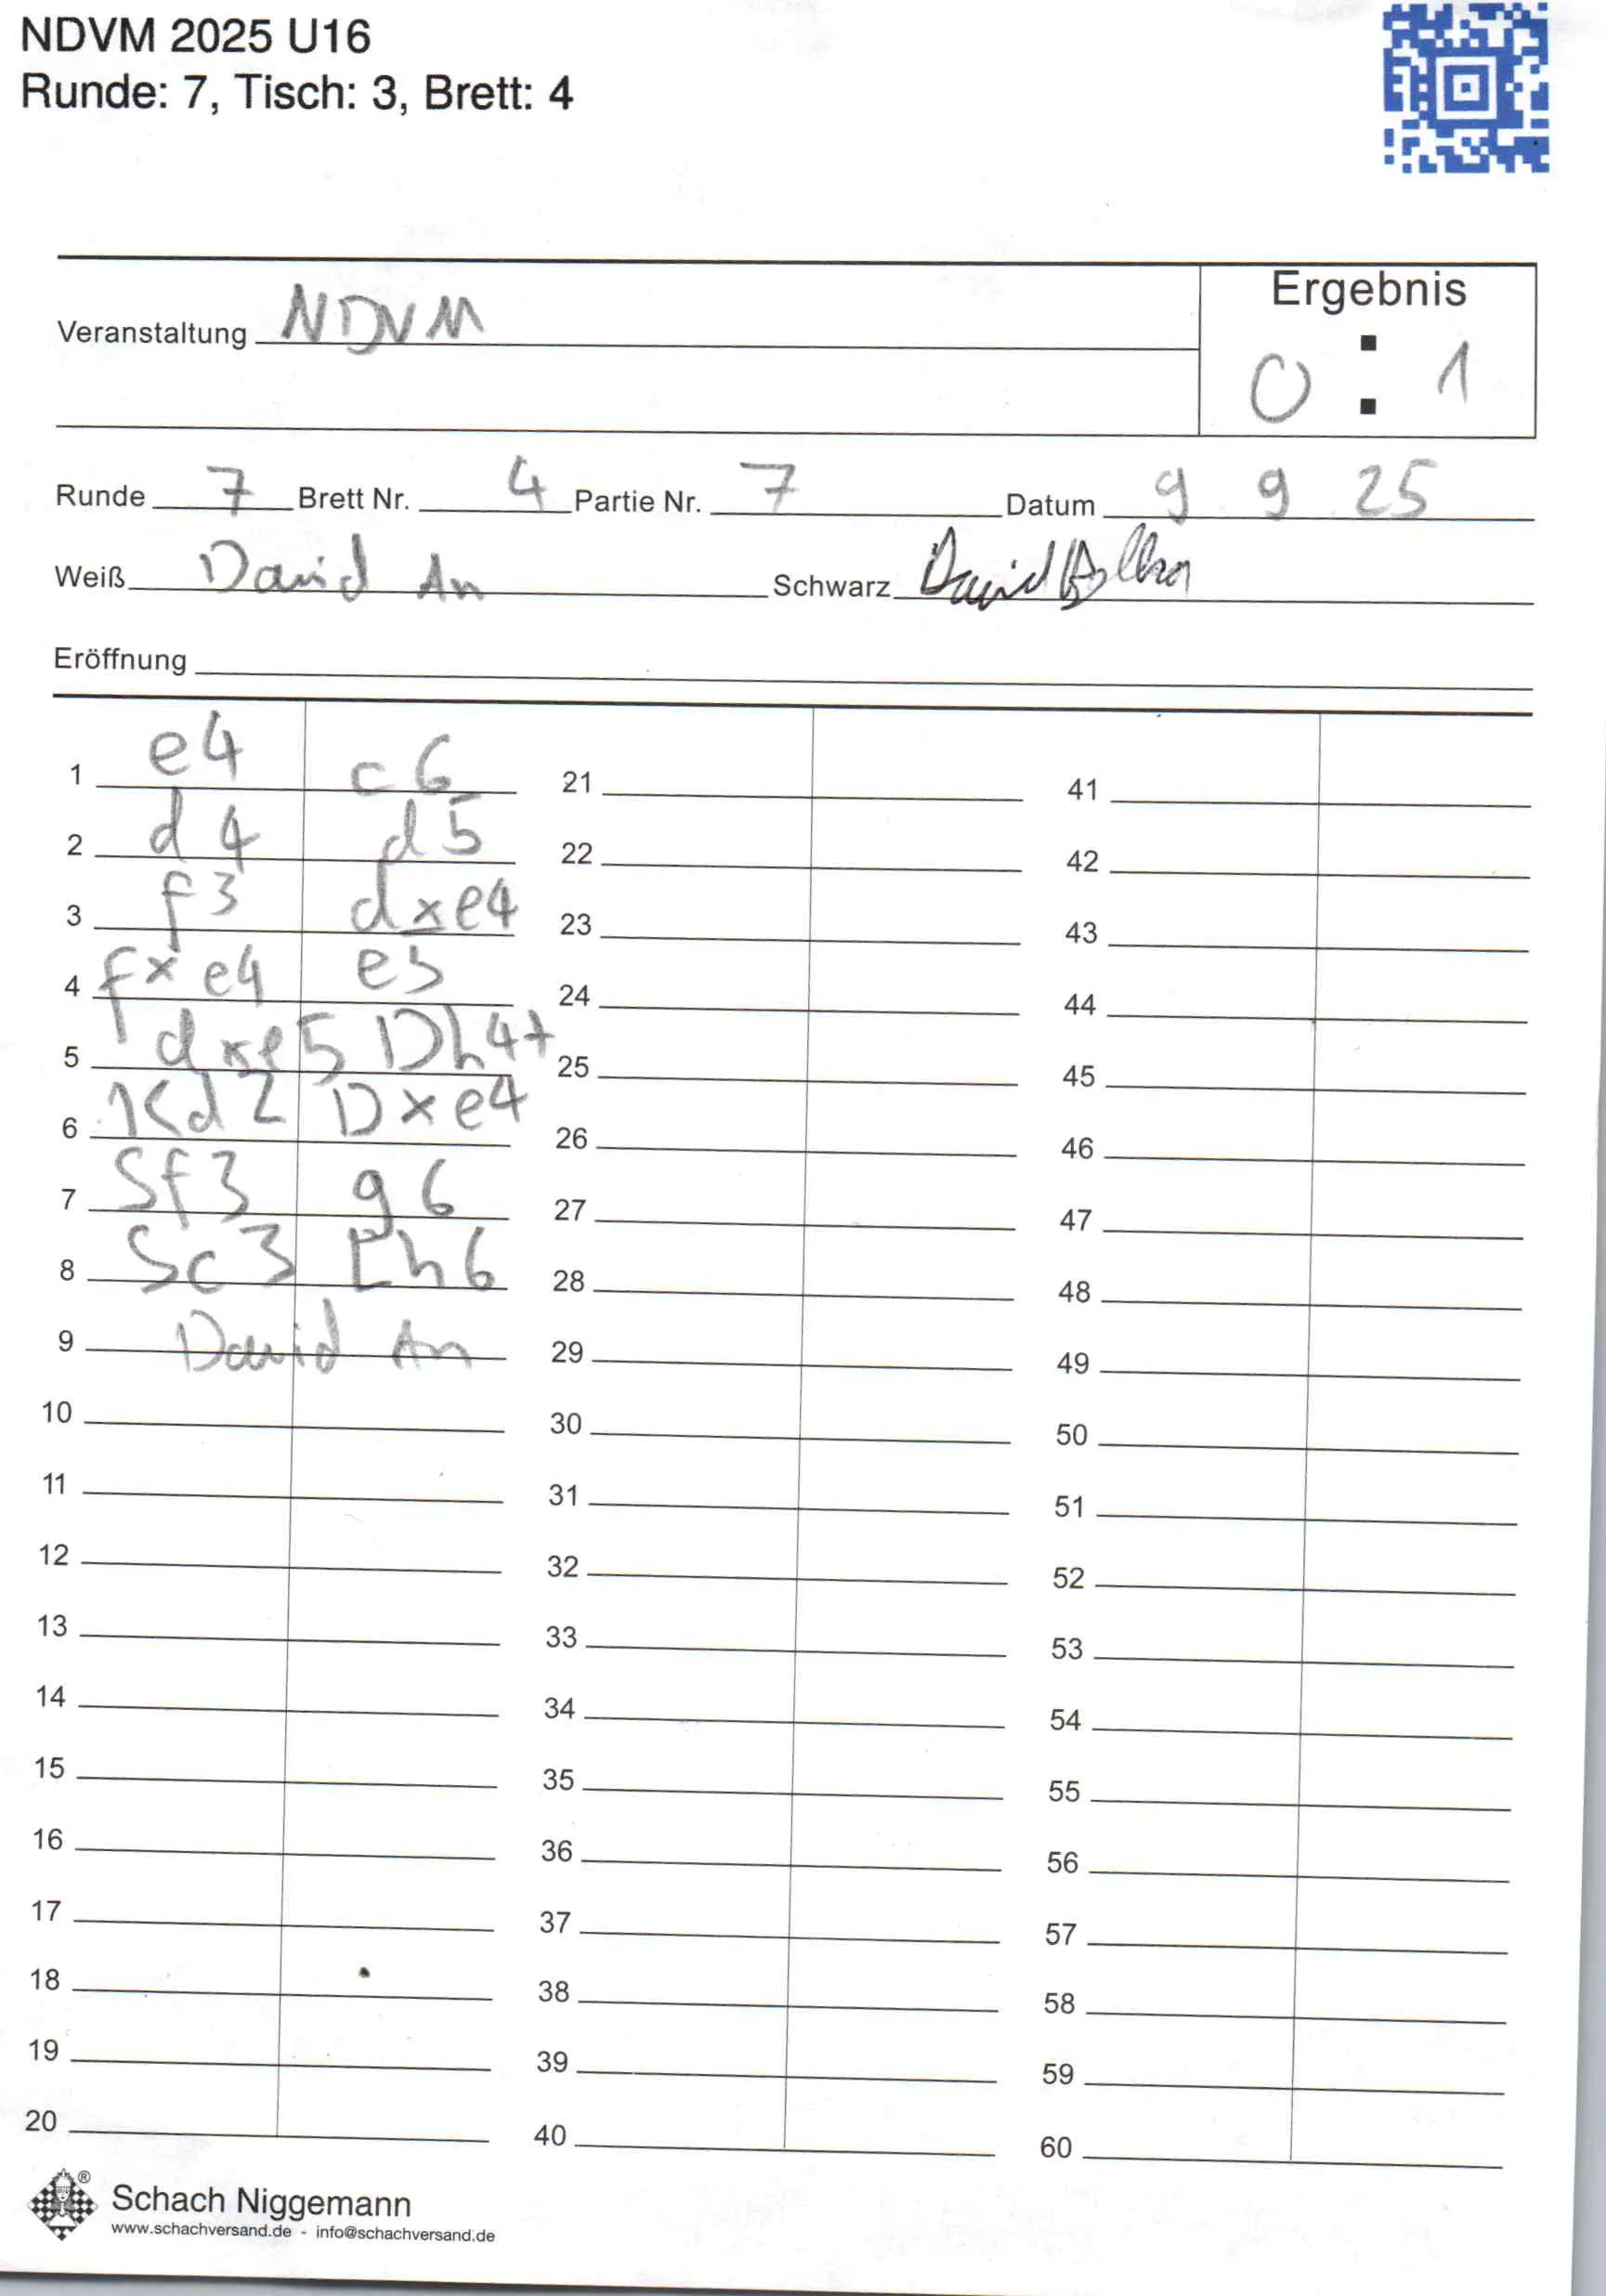 NDVM 2025 U16
Runde: 7, Tisch: 3, Brett: 4
Ergebnis
Veranstaltung NDVM
0 : 1
Runde 7 Brett Nr. 4 Partie Nr. 7 Datum 9 9 25
Weiß David An Schwarz David
Eröffnung
1 e4 c6 21 41
2 d4 d5 22 42
3 f3 dxe4 23 43
4 fxe4 e5 24 44
5 dxe5 Dh4+ 25 45
6 Kd2 Dxe4 26 46
7 Sf3 g6 27 47
8 Sc3 Lh6 28 48
9 David An 29 49
10 30 50
11 31 51
12 32 52
13 33 53
14 34 54
15 35 55
16 36 56
17 37 57
18 38 58
19 39 59
20 40 60
® Schach Niggemann
www.schachversand.de - info@schachversand.de